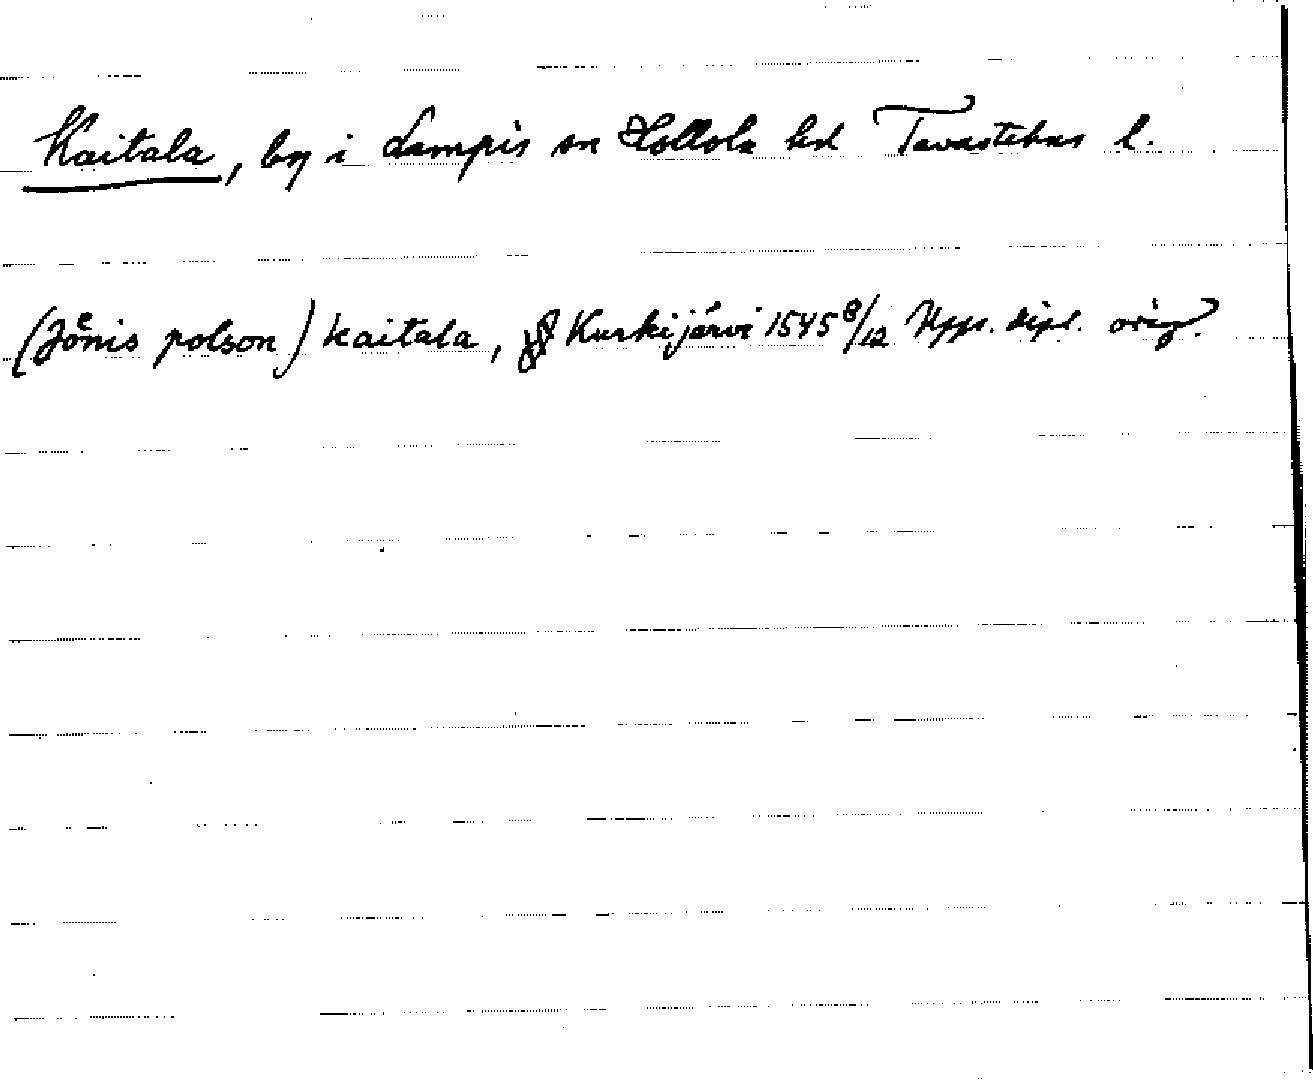 Kaitala, by i Lampis sn Hollola hd Tavastehus l.
(Jönis polson) kaitala, § Kurkijärvi 1545 8/12 Upps. dipl. orig.